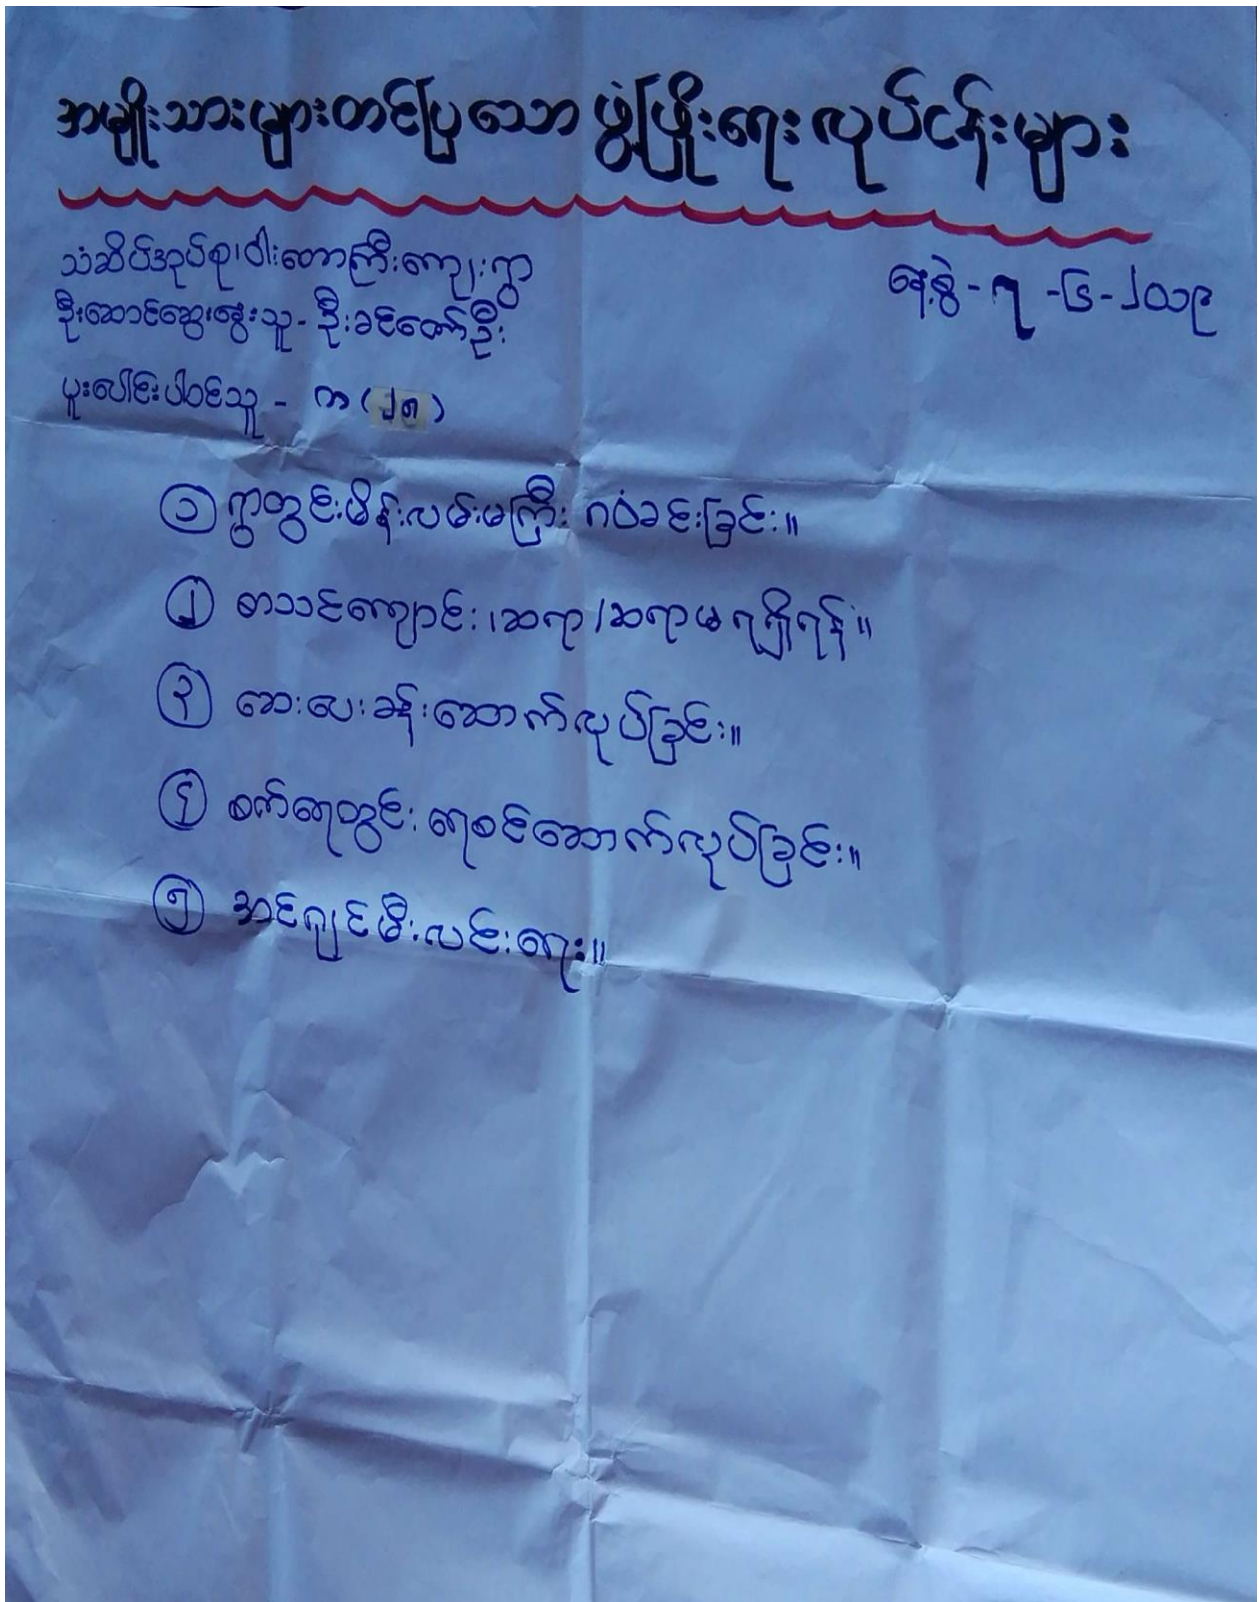 အမျိုးသားများတင်ပြသော ဖွံ့ဖြိုးရေးလုပ်ငန်းများ
သံဆိပ်အုပ်စု၊ဝါးတောကြီးကျေးရွာ
နေ့စွဲ - ၇ -၆-၂၀၁၉
ဦးဆောင်ဆွေးနွေးသူ - ဦးခင်ဇော်ဦး
ပူးပေါင်းပါဝင်သူ - ကျား (၂၈)
၁ ရွာတွင်းမိန်းလမ်းမကြီး ဂဝံခင်းခြင်း။
၂ စာသင်ကျောင်း၊ဆရာ/ဆရာမ ရရှိရန်။
၃ ဆေးပေးခန်းဆောက်လုပ်ခြင်း။
၄ စက်ရေတွင်း ရေစင်ဆောက်လုပ်ခြင်း။
၅ အင်ဂျင်မီးလင်းရေး။